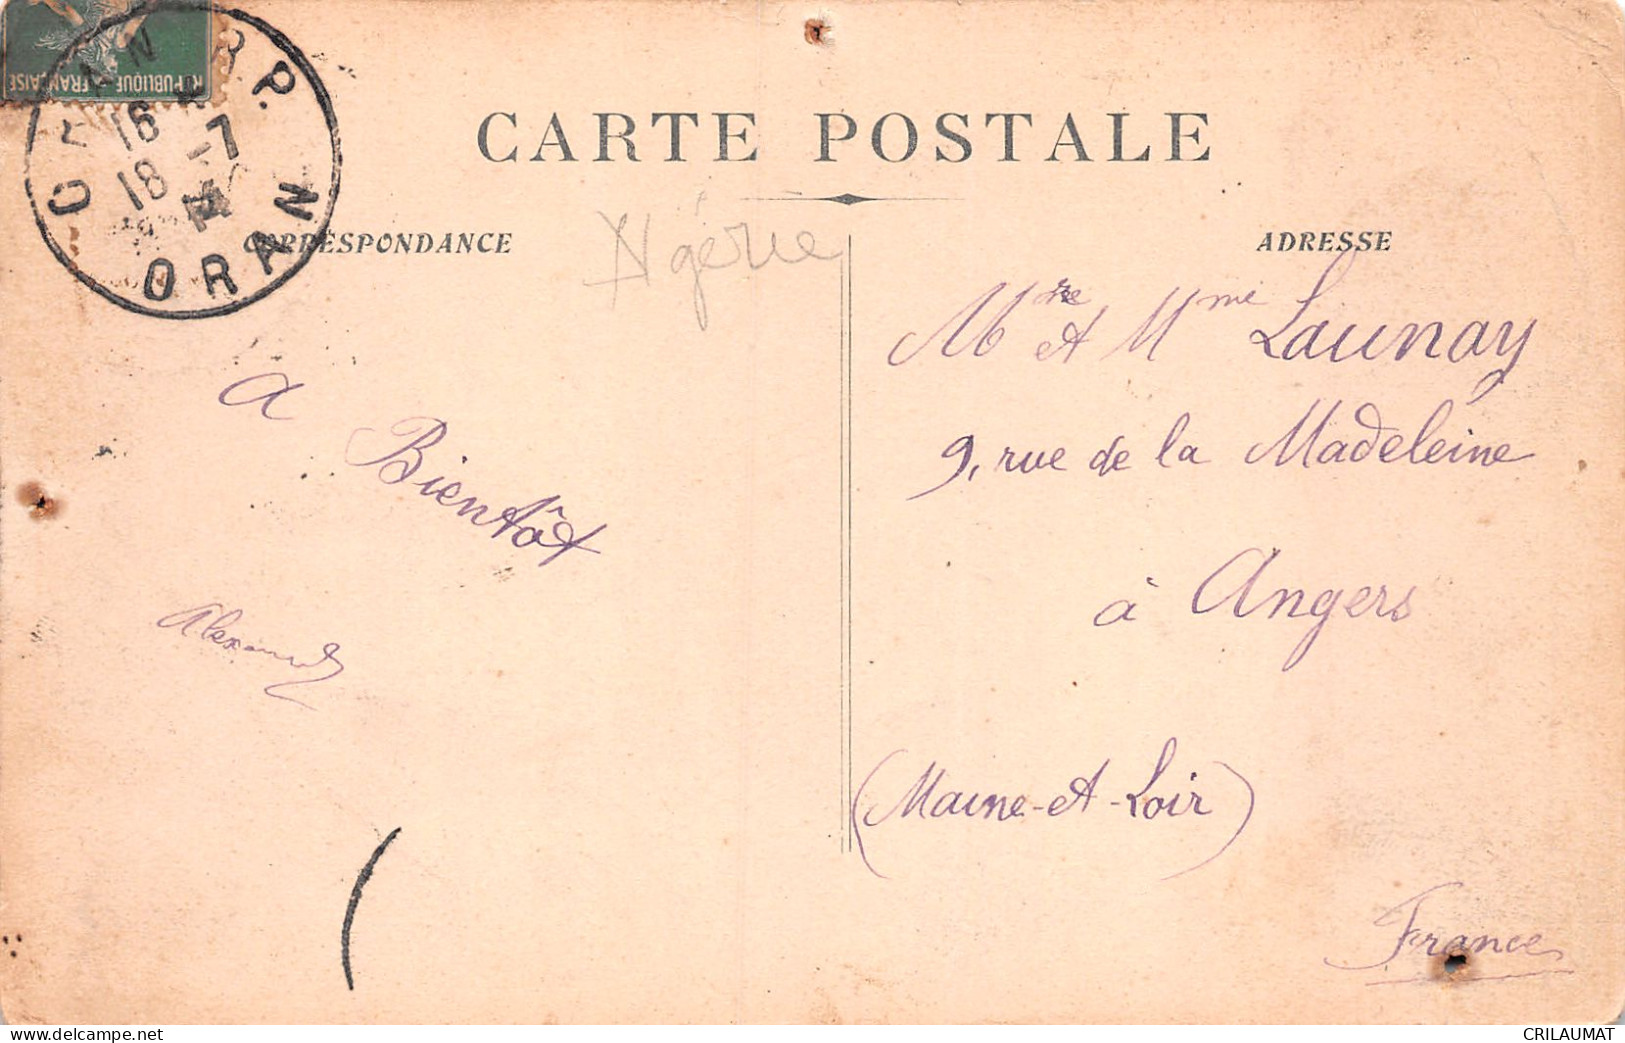 RÉPUBLIQUE FRANÇAISE
ORAN R.P.
16
18 -7
14
ORAN
CARTE POSTALE
CORRESPONDANCE
ADRESSE
Algérie
Mre et Mme Launay
9, rue de la Madeleine
à Angers
(Maine-et-Loir)
France
A
Bientôt
www.delcampe.net
CRILAUMAT